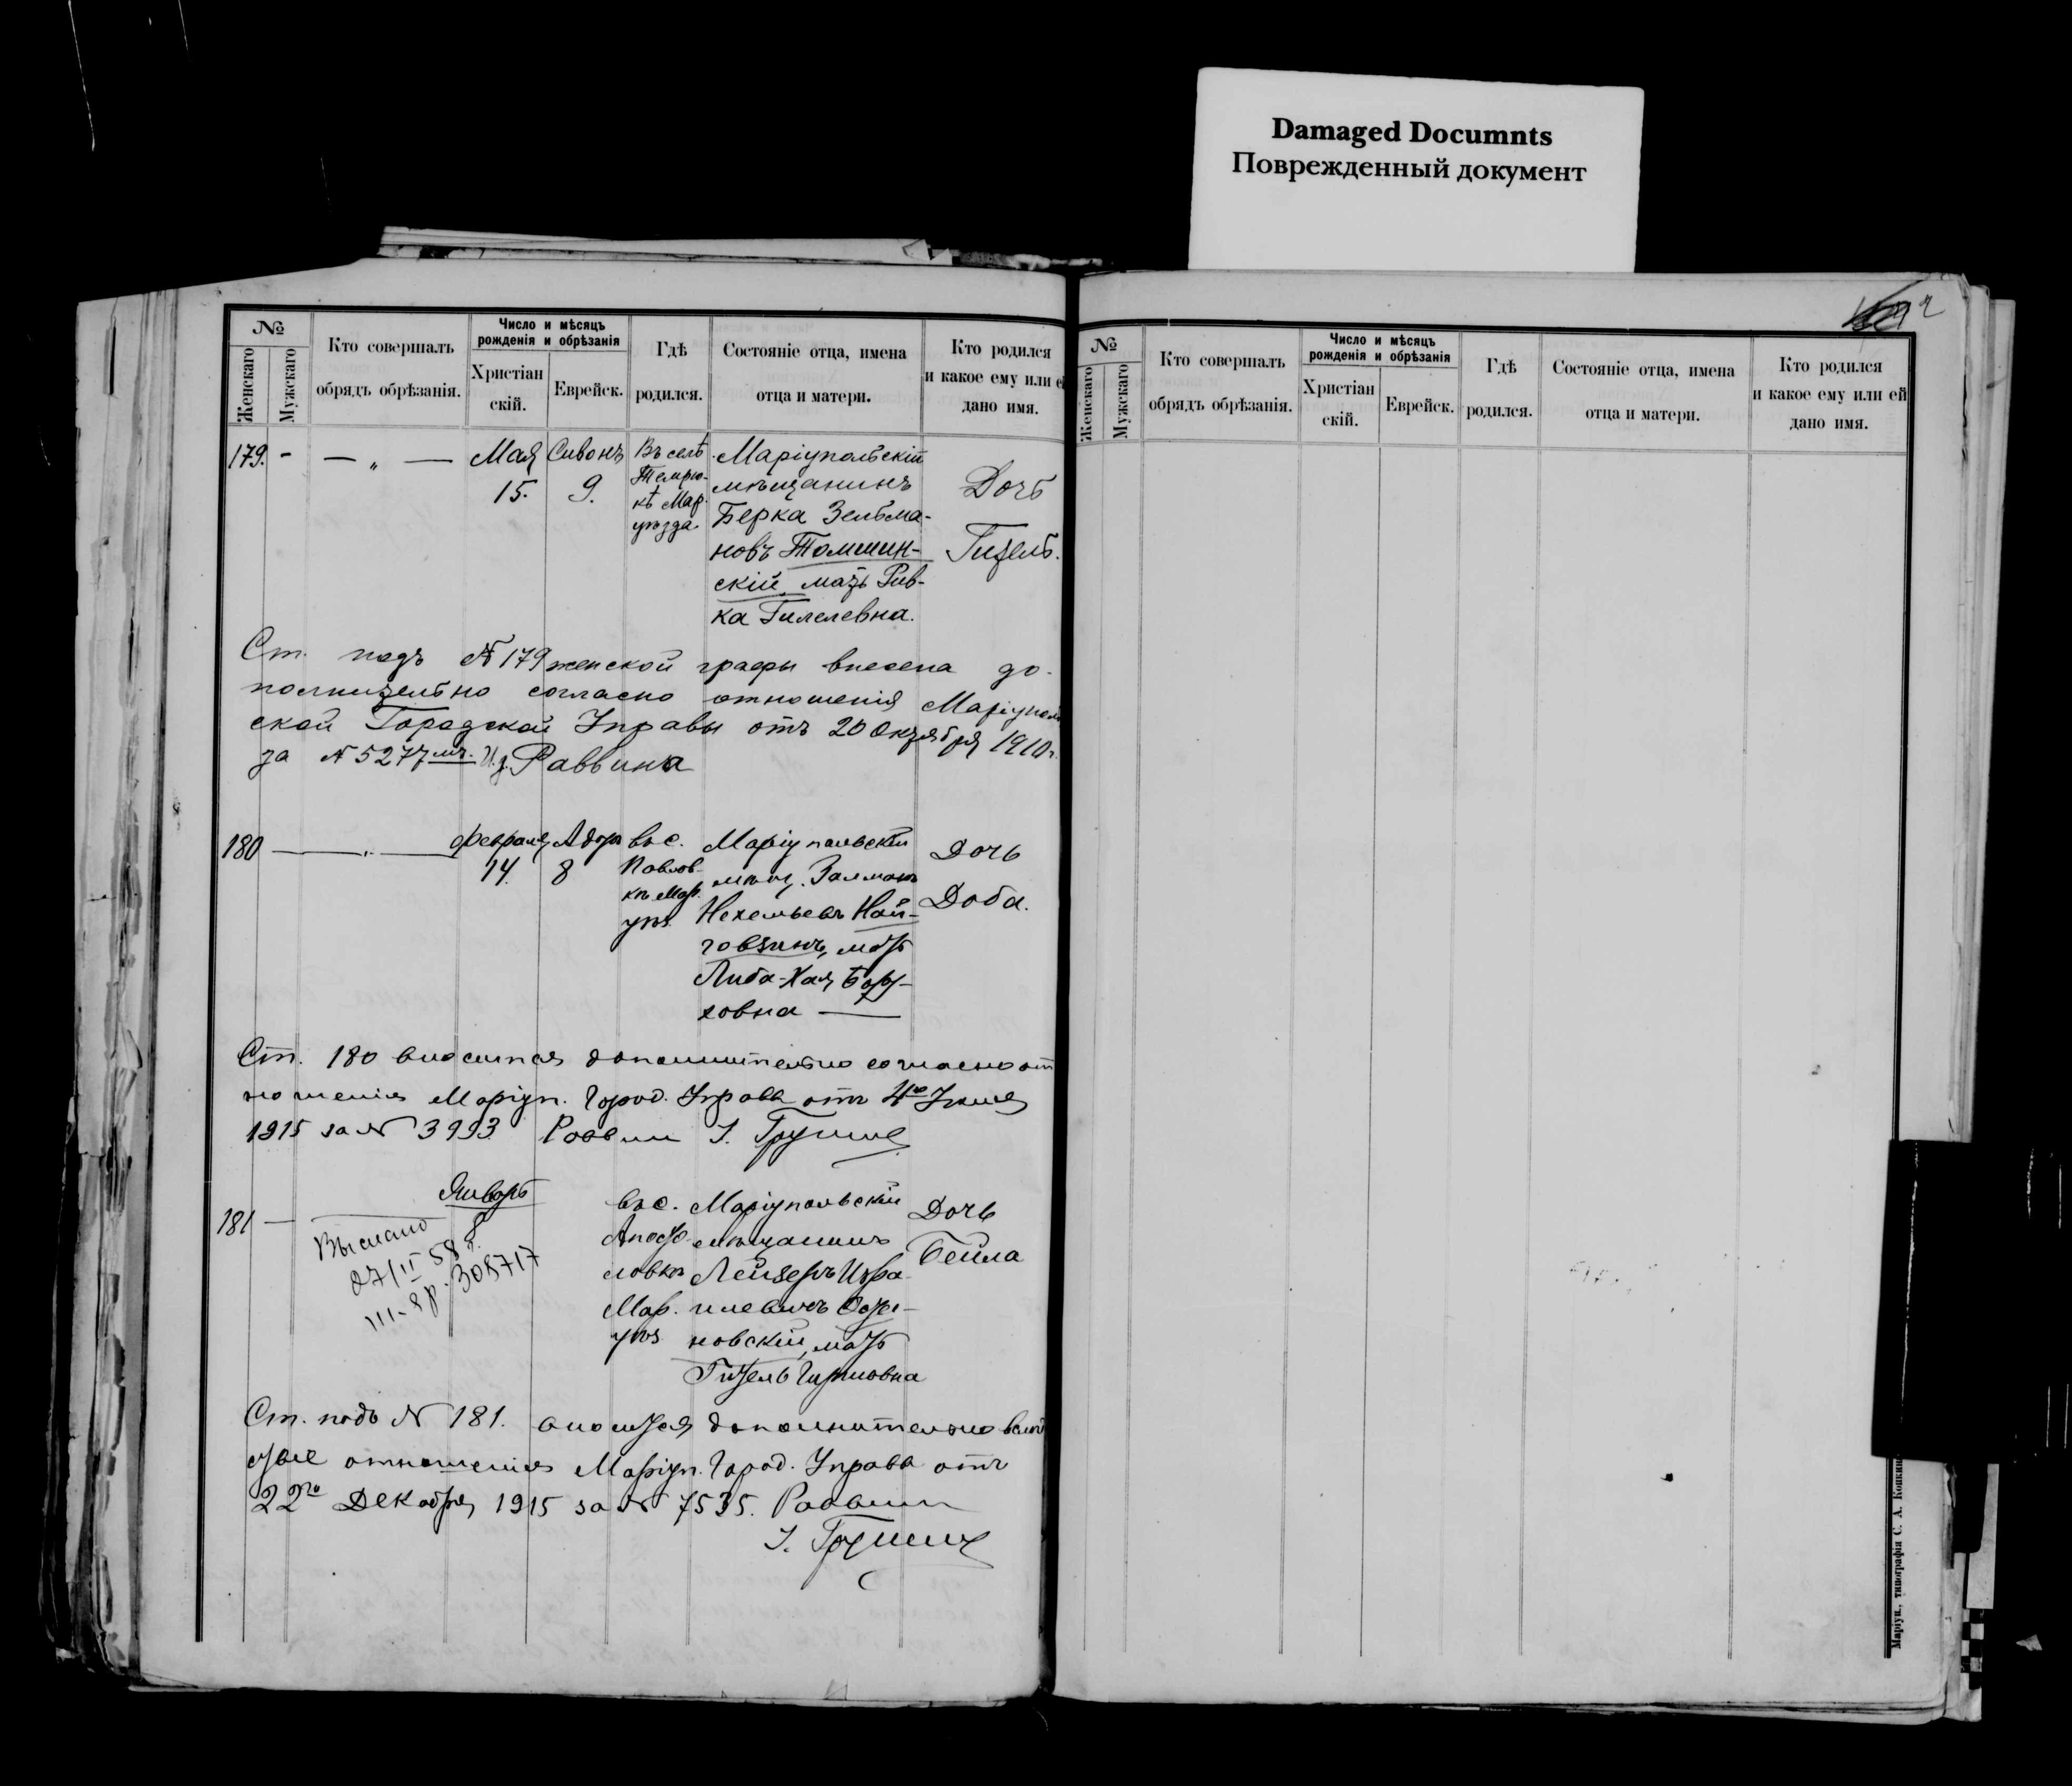 Damaged Documnts
Поврежденный документ
№
Женскаго
Мужскаго
Кто совершалъ
обрядъ обрѣзанія.
Число и мѣсяцъ
рожденія и обрѣзанія
Христіан
скій.
Еврейск.
Гдѣ
родился.
Состояніе отца, имена
отца и матери.
Кто родился
и какое ему или ей
дано имя.
179. - — „ — Мая Сивонъ
15. 9.
Въ селѣ
Темрю-
кѣ Мар.
уѣзда.
Маріупольскій
мѣщанинъ
Берка Зельма-
новъ Томшин-
скій, мать Рив-
ка Гилелевна.
Дочь
Гитель.
Ст. подъ № 179 женской графы внесена до-
полнительно согласно отношенія Маріуполь
ской Городской Управы отъ 20 Октября 1910 г.
за № 5277 мъ. И. д. Раввина
180 — „ — Февраля Адоръ
14. 8
въ с.
Павлов-
кѣ Мар.
уѣз.
Маріупольскій
мѣщ. Залманъ
Нехемьевъ Най-
говзинъ, мать
Либа-Хая Бору-
ховна —
Дочь
Доба.
Ст. 180 вносится дополнительно согласно от
ношенія Маріуп. Город. Управы отъ 4го Іюня
1915 за № 3993 Раввин І.
181 — Январь
Выслано
27/II 58 г.
III-ЯР. 308717
въ с.
Апосто-
ловкѣ
Мар.
уѣз.
Маріупольскій
мѣщанинъ
Лейзеръ Изра-
илевичъ
новскій, мать
Гитель Гиршовна
Дочь
Бейла
Ст. подъ № 181. вносится дополнительно вслѣд
ствіе отношенія Маріуп. Город. Управы отъ
22го Декабря 1915 за № 7535. Раввин
І.
№
Женскаго
Мужскаго
Кто совершалъ
обрядъ обрѣзанія.
Число и мѣсяцъ
рожденія и обрѣзанія
Христіан
скій.
Еврейск.
Гдѣ
родился.
Состояніе отца, имена
отца и матери.
Кто родился
и какое ему или ей
дано имя.
Маріуп., типографія С. А. Копкин